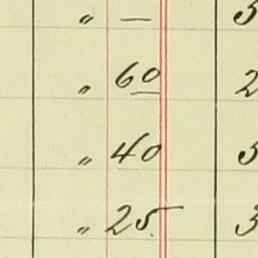 " — 3
" 60 2
" 40 3
" 25 3